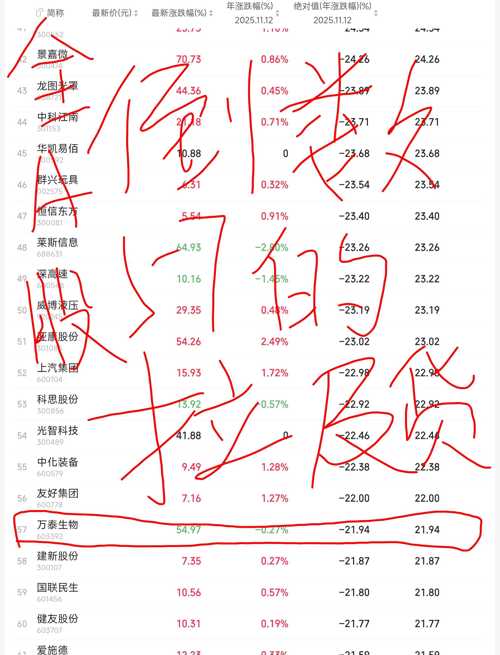 简称 最新价(元) 最新涨跌幅(%) 年涨跌幅(%) 2025.11.12 绝对值(年涨跌幅(%)) 2025.11.12
42 景嘉微 70.73 0.86% -24.26 24.26
43 龙图光罩 44.36 0.45% -23.89 23.89
44 中科江南 0.71% -23.71 23.71
301153
45 华凯易佰 10.88 0 -23.68 23.68
46 群兴玩具 6.31 0.32% -23.54 23.54
002575
47 恒信东方 5.54 0.91% -23.40 23.40
300081
48 莱斯信息 64.93 -23.26 23.26
688631
49 深高速 10.16 -23.22 23.22
50 威博液压 29.35 0.48% -23.19 23.19
51 亚康股份 54.26 2.49% -23.02 23.02
52 上汽集团 15.93 1.72% -22.98 22.98
600104
53 科思股份 13.92 -0.57% -22.92 22.92
300856
54 光智科技 41.88 0 -22.46 22.46
300489
55 中化装备 9.49 1.28% -22.38 22.38
600579
56 友好集团 7.16 1.27% -22.00 22.00
600778
57 万泰生物 54.97 -0.27% -21.94 21.94
603392
58 建新股份 7.35 0.27% -21.87 21.87
300107
59 国联民生 10.56 0.57% -21.80 21.80
601456
60 健友股份 10.31 0.19% -21.77 21.77
603707
爱施德 12.23 0.33% -21.59 21.59
全倒数
A股门的
投及货